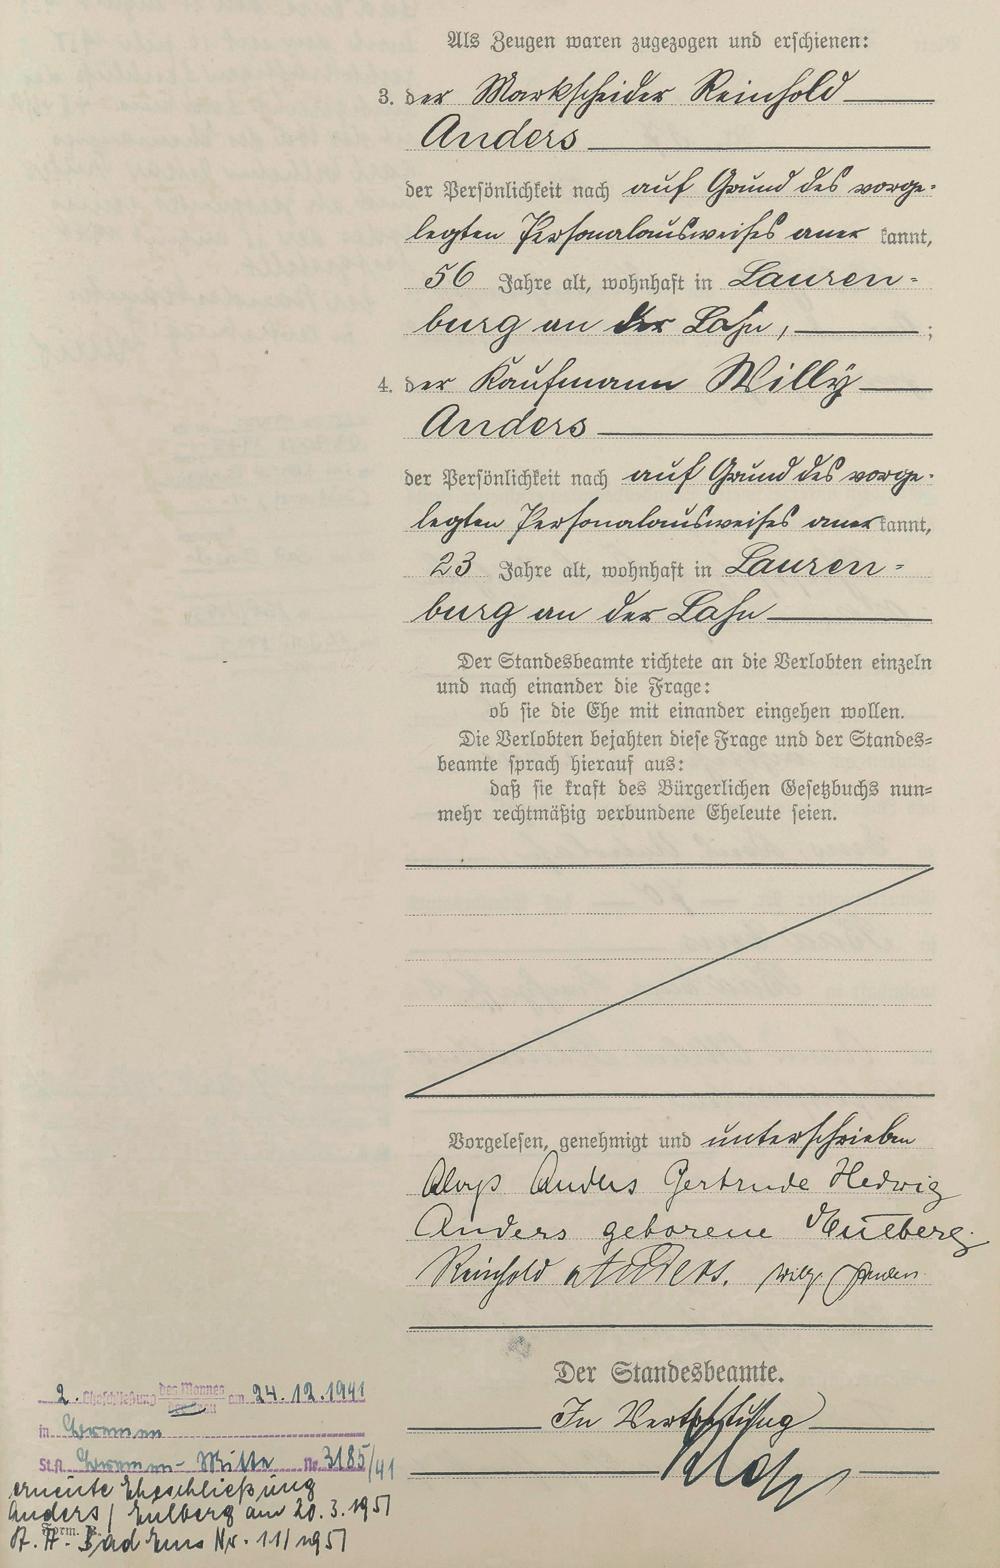 Als Zeugen waren zugezogen und erschienen:
3. der Markscheider Reinhold
Anders
der Persönlichkeit nach auf Grund des vorge-
legten Personalausweises aner kannt,
56 Jahre alt, wohnhaft in Lauren-
burg an der Lahn, ;
4. der Kaufmann Willy
Anders
der Persönlichkeit nach auf Grund des vorge-
legten Personalausweises aner kannt,
23 Jahre alt, wohnhaft in Lauren-
burg an der Lahn
Der Standesbeamte richtete an die Verlobten einzeln
und nach einander die Frage:
ob sie die Ehe mit einander eingehen wollen.
Die Verlobten bejahten diese Frage und der Standes-
beamte sprach hierauf aus:
daß sie kraft des Bürgerlichen Gesetzbuchs nun-
mehr rechtmäßig verbundene Eheleute seien.
Vorgelesen, genehmigt und unterschrieben
Aloys Anders Gertrude Hedwig
Anders geborene Eulberg
Reinhold Anders. Willy Anders
Der Standesbeamte.
In Vertretung
2. Eheschließung des Mannes der Frau am 24.12.1941
in Bremen
St.A. Bremen-Mitte Nr. 3185/41
erneute Eheschließung
Anders / Eulberg am 20.3.1951
St. A. Bad Ems Nr. 11/1951
Form.